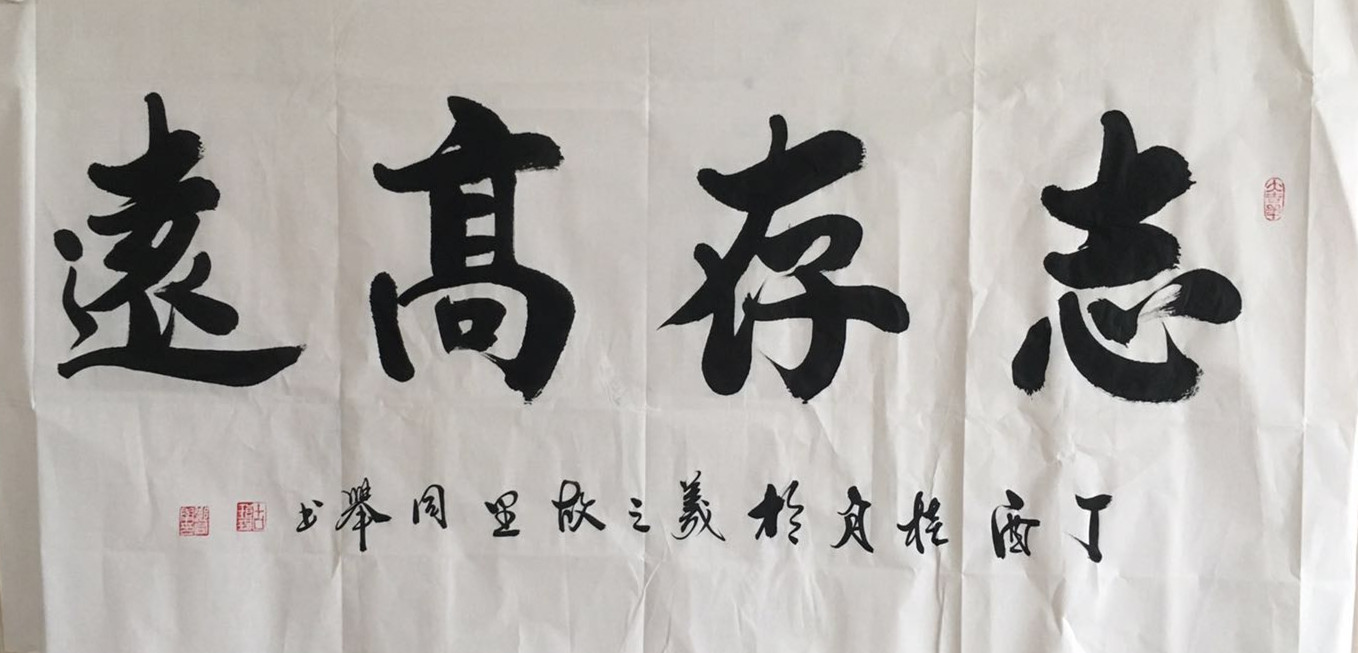 志存高遠
丁酉桂月於羲之故里同舉书